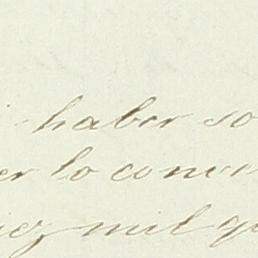 haber so
er lo conve
iez mil qu